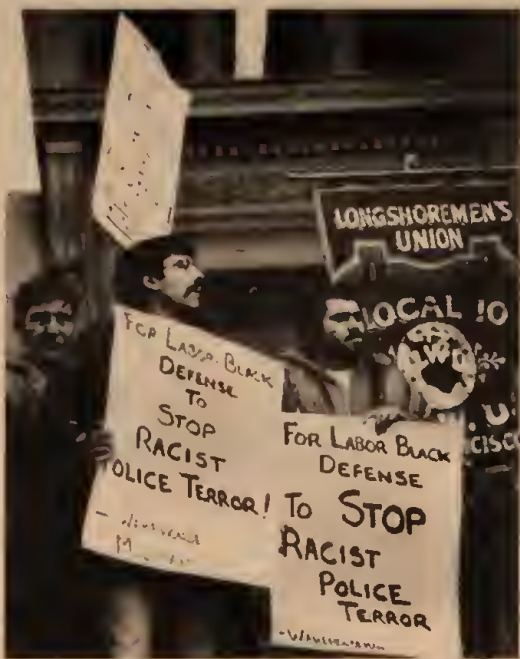 LONGSHOREMEN'S
UNION
LOCAL 10
FOR LABOR BLACK
DEFENSE
TO
STOP
RACIST
POLICE TERROR!
FOR LABOR BLACK
DEFENSE
TO STOP
RACIST
POLICE
TERROR